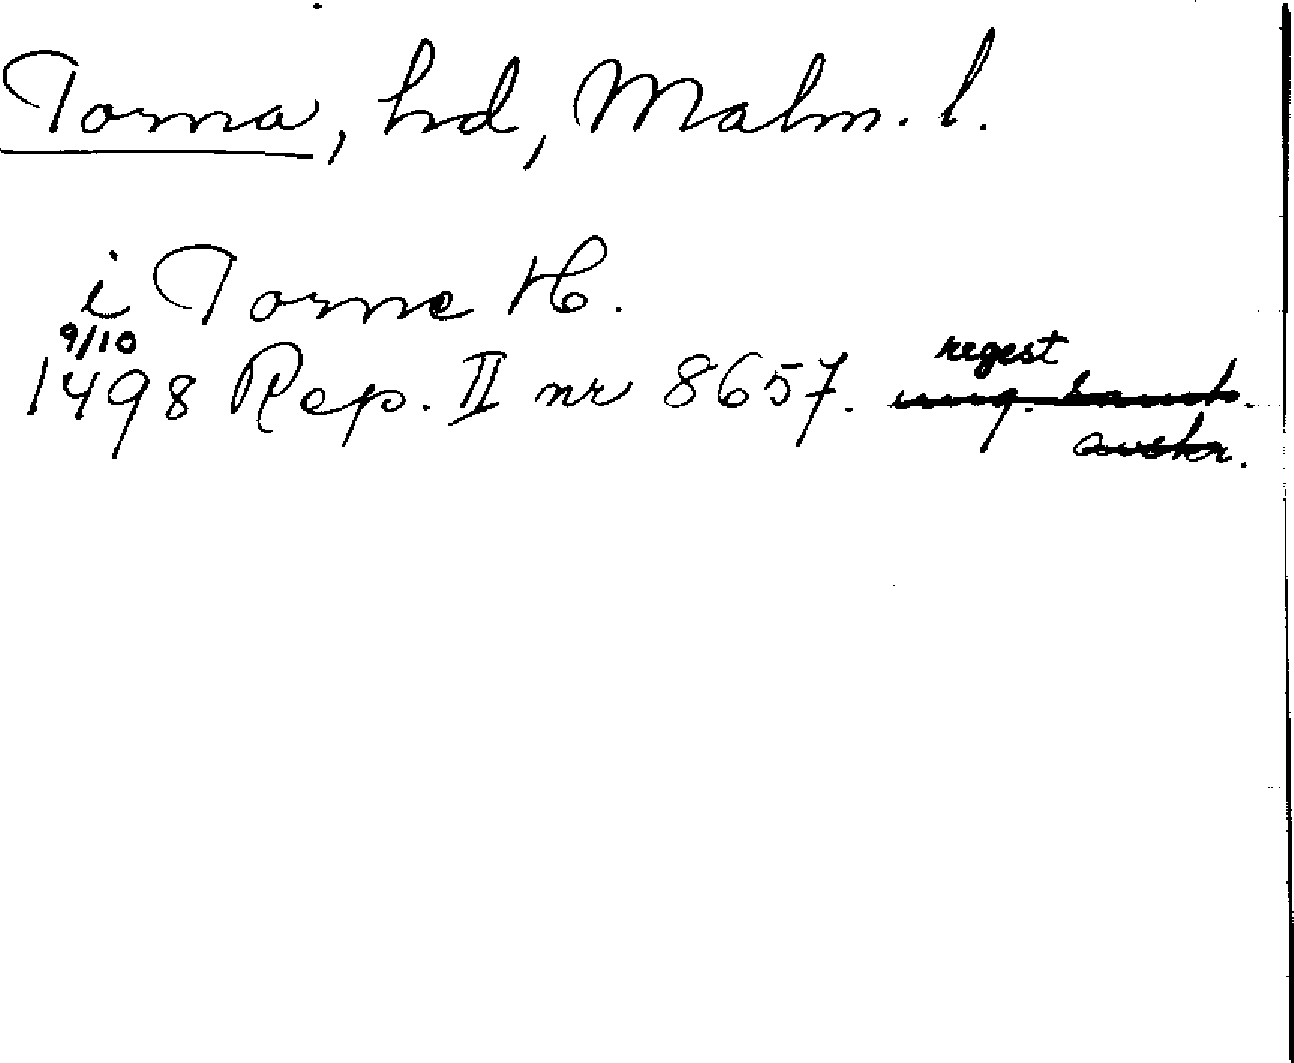 Torna, hd, Malm. l.
i Torne H.
9/10
1498 Rep. II nr 8657. regest
avskr.